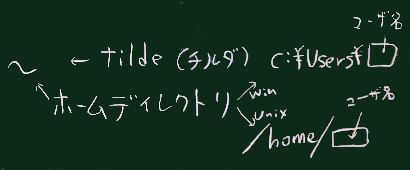 ユーザ名
~ ← tilde (チルダ) C:¥Users¥
ホームディレクトリ
Win
Unix
ユーザ名
/home/